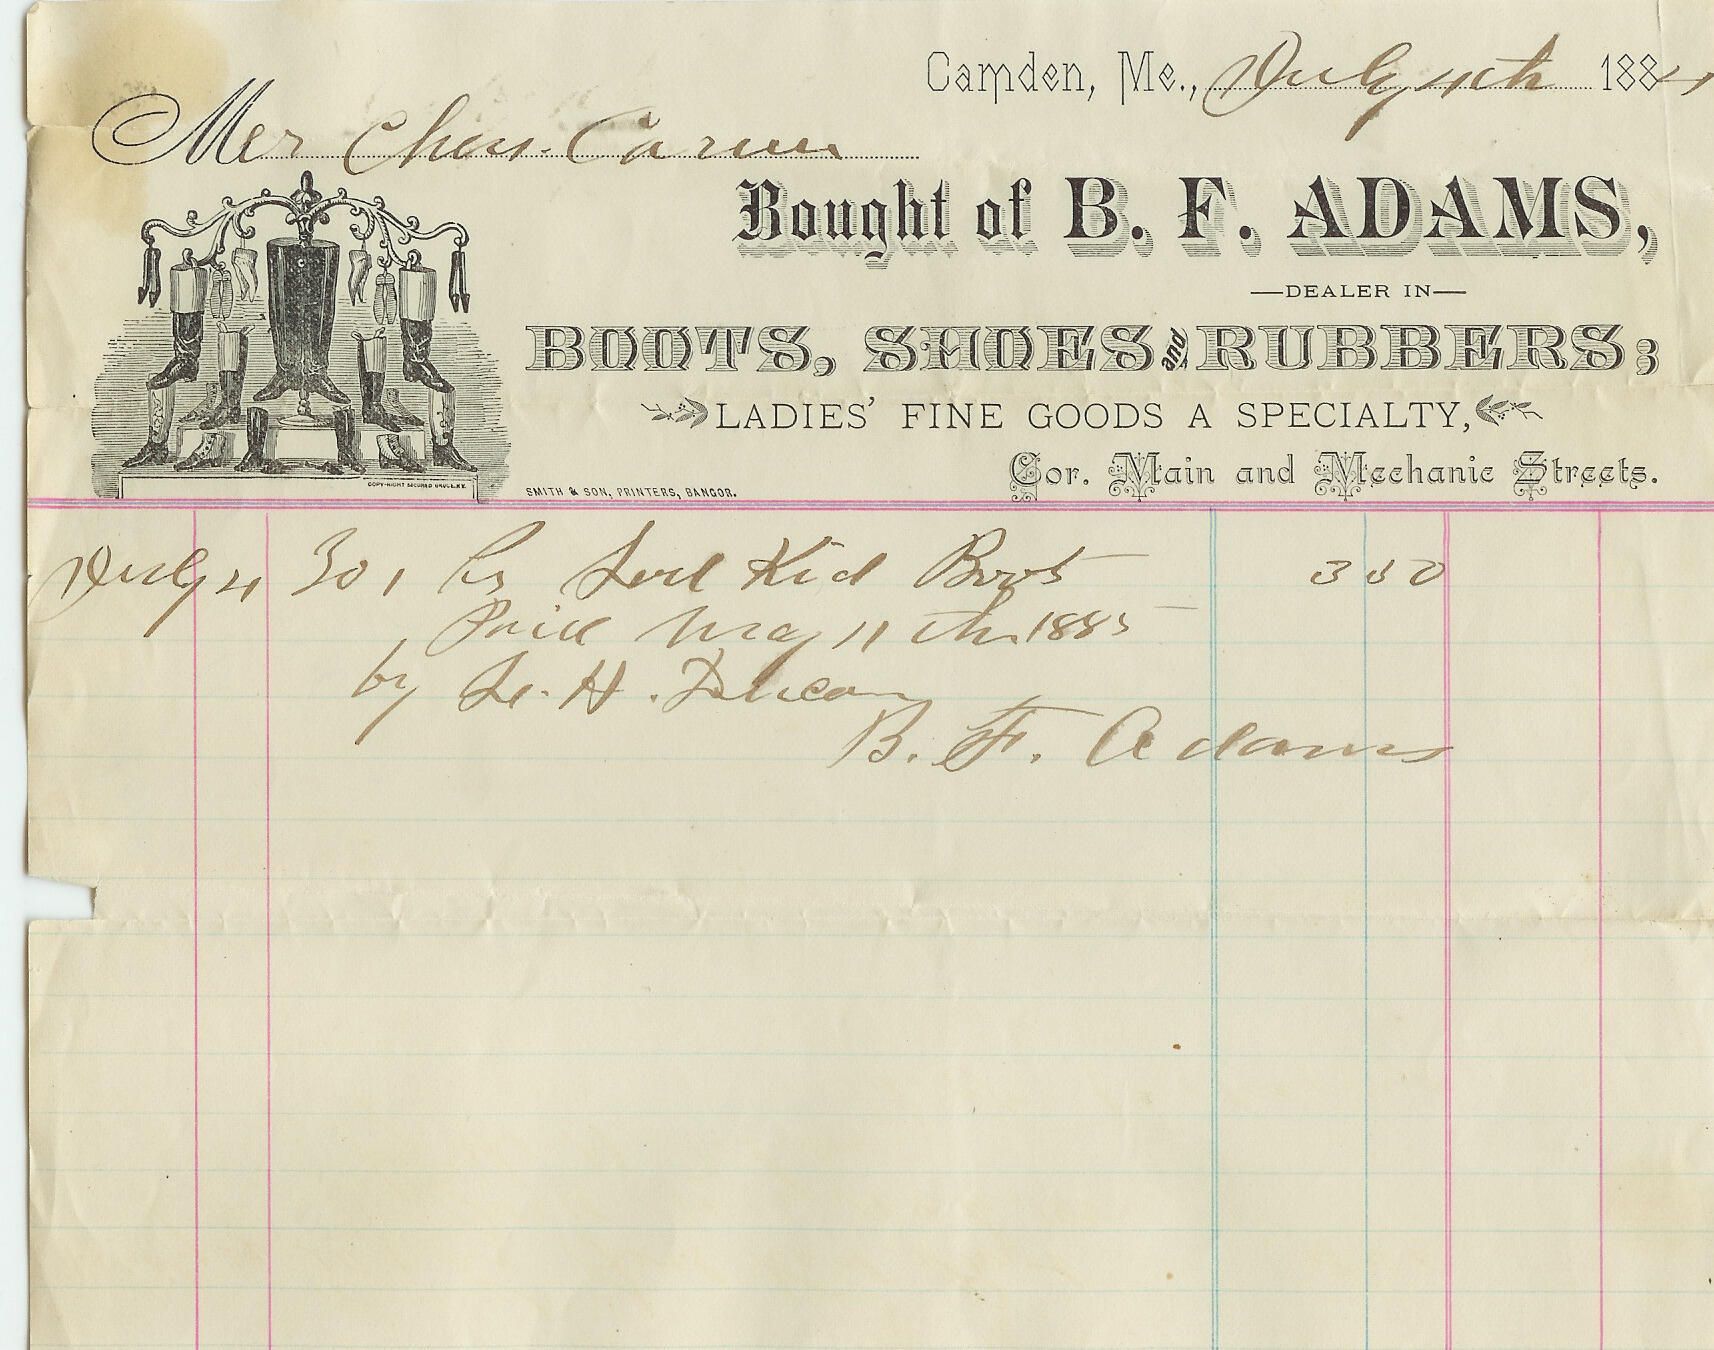 Camden, Me., July 4th 1884
Mer Chas. Carver
Bought of B. F. ADAMS,
—DEALER IN—
BOOTS, SHOES and RUBBERS;
LADIES' FINE GOODS A SPECIALTY,
Cor. Main and Mechanic Streets.
SMITH & SON, PRINTERS, BANGOR.
July 4 30 1 Pr Kid Boots 3 50
Paid May 11th 1885
by H. Duncan
B. F. Adams